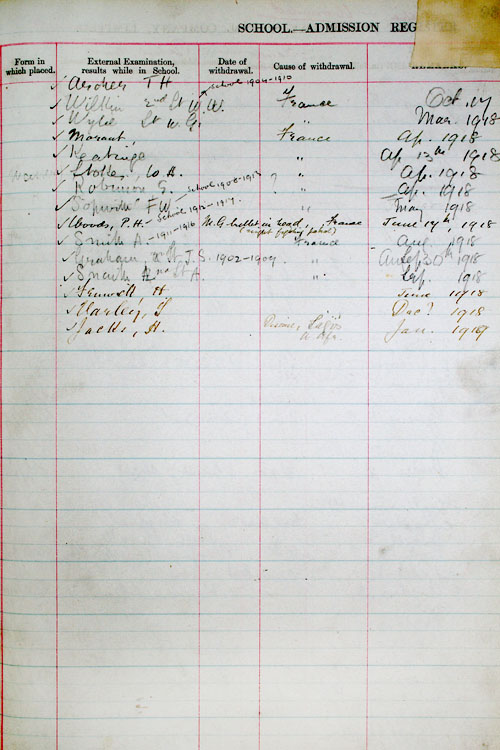 SCHOOL.—ADMISSION REG
Form in which placed. External Examination, results while in School. Date of withdrawal. Cause of withdrawal.
✓ Archer T H
✓ Wilkin 2nd Lt W. W. School 1904-1910 France Oct. 17
✓ Wylie Lt W. G. " Mar. 1918
✓ Morant, France Ap. 1918
✓ Keatinge " Ap 13th 1918
✓ Stokes, W. H. " Ap. 1918
✓ Robinson G. ? " Ap. 1918
✓ F W School 1908-1913 " May 1918
✓ Woods, P. H. School 1912-1917. M. G. bullet in head, France June 14th, 1918
✓ Smith A 1911-1916 France Aug. 1918
✓ Graham, 2nd Lt J. S. 1902-1909 " Sep 30th 1918
✓ Smith 2nd Lt A. " Sep. 1918
✓ H June 1918
✓ Harley, " Dec. 1918
✓ H. Lagos Jan. 1919
W Afr.